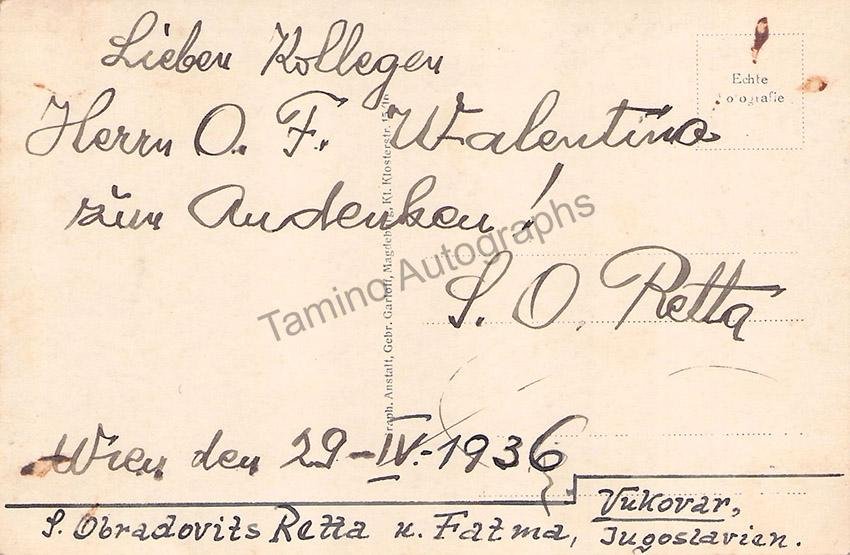 Lieben Kollegen
Herrn O. F. Walentino
zum Andenken!
S. O. Retta
Wien den 29-IV.-1936
S. Obradovits Retta u. Fatma, Vukovar, Jugoslavien.
Echte
Fotografie
Graph. Anstalt, Gebr. Garloff, Magdeburg, Kl. Klosterstr. 15/16
Tamino Autographs